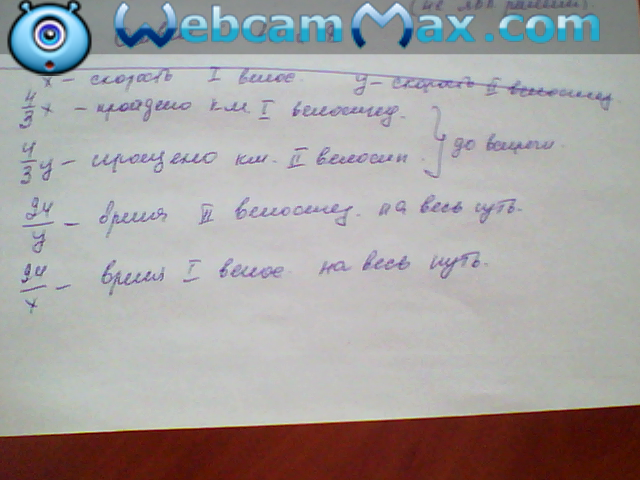 WebcamMax.com
(не явл решением)
x – скорость I велос. y – скорость II велосипед
4/3 x – пройдено км I велосипед.
4/3 y – пройдено км. II велосип. } до встречи.
24/y – время II велосипед. на весь путь.
24/x – время I велос. на весь путь.